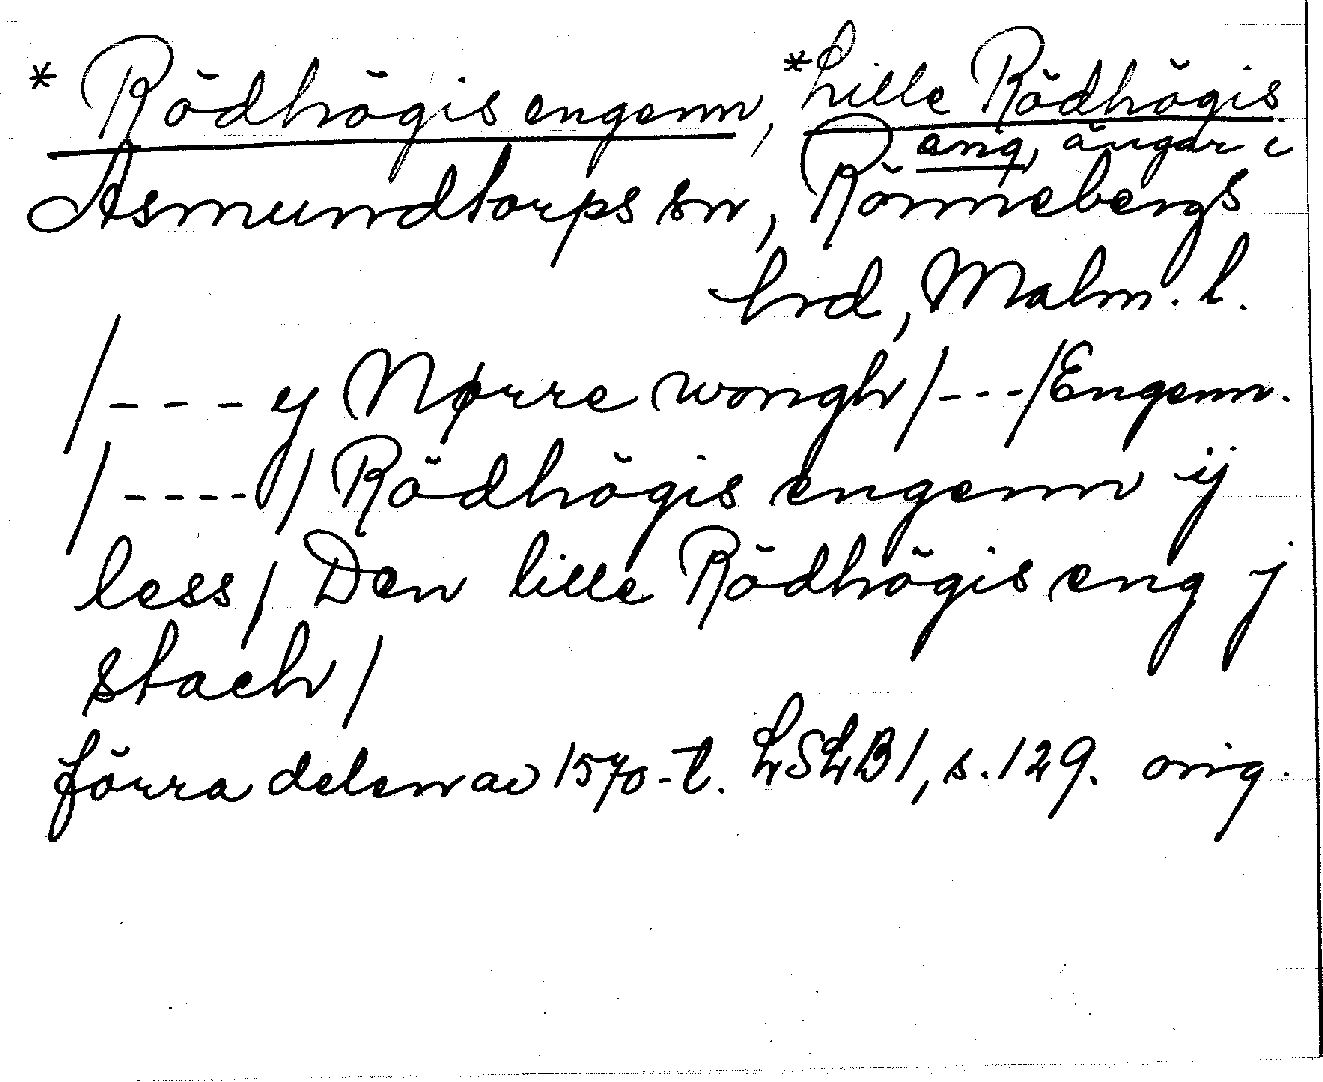 * Rödhögis engenn, * Lille Rödhögis
eng, ängar i
Asmundtorps sn, Rönnebergs
hrd, Malm. l.
/ - - - y Nørre wongh / - - - / Engenn.
/ - - - - / Rödhögis engenn ij
less / Den lille Rödhögis eng j
stach /
förra delen av 1570-t. LSLB 1, s. 129. orig.